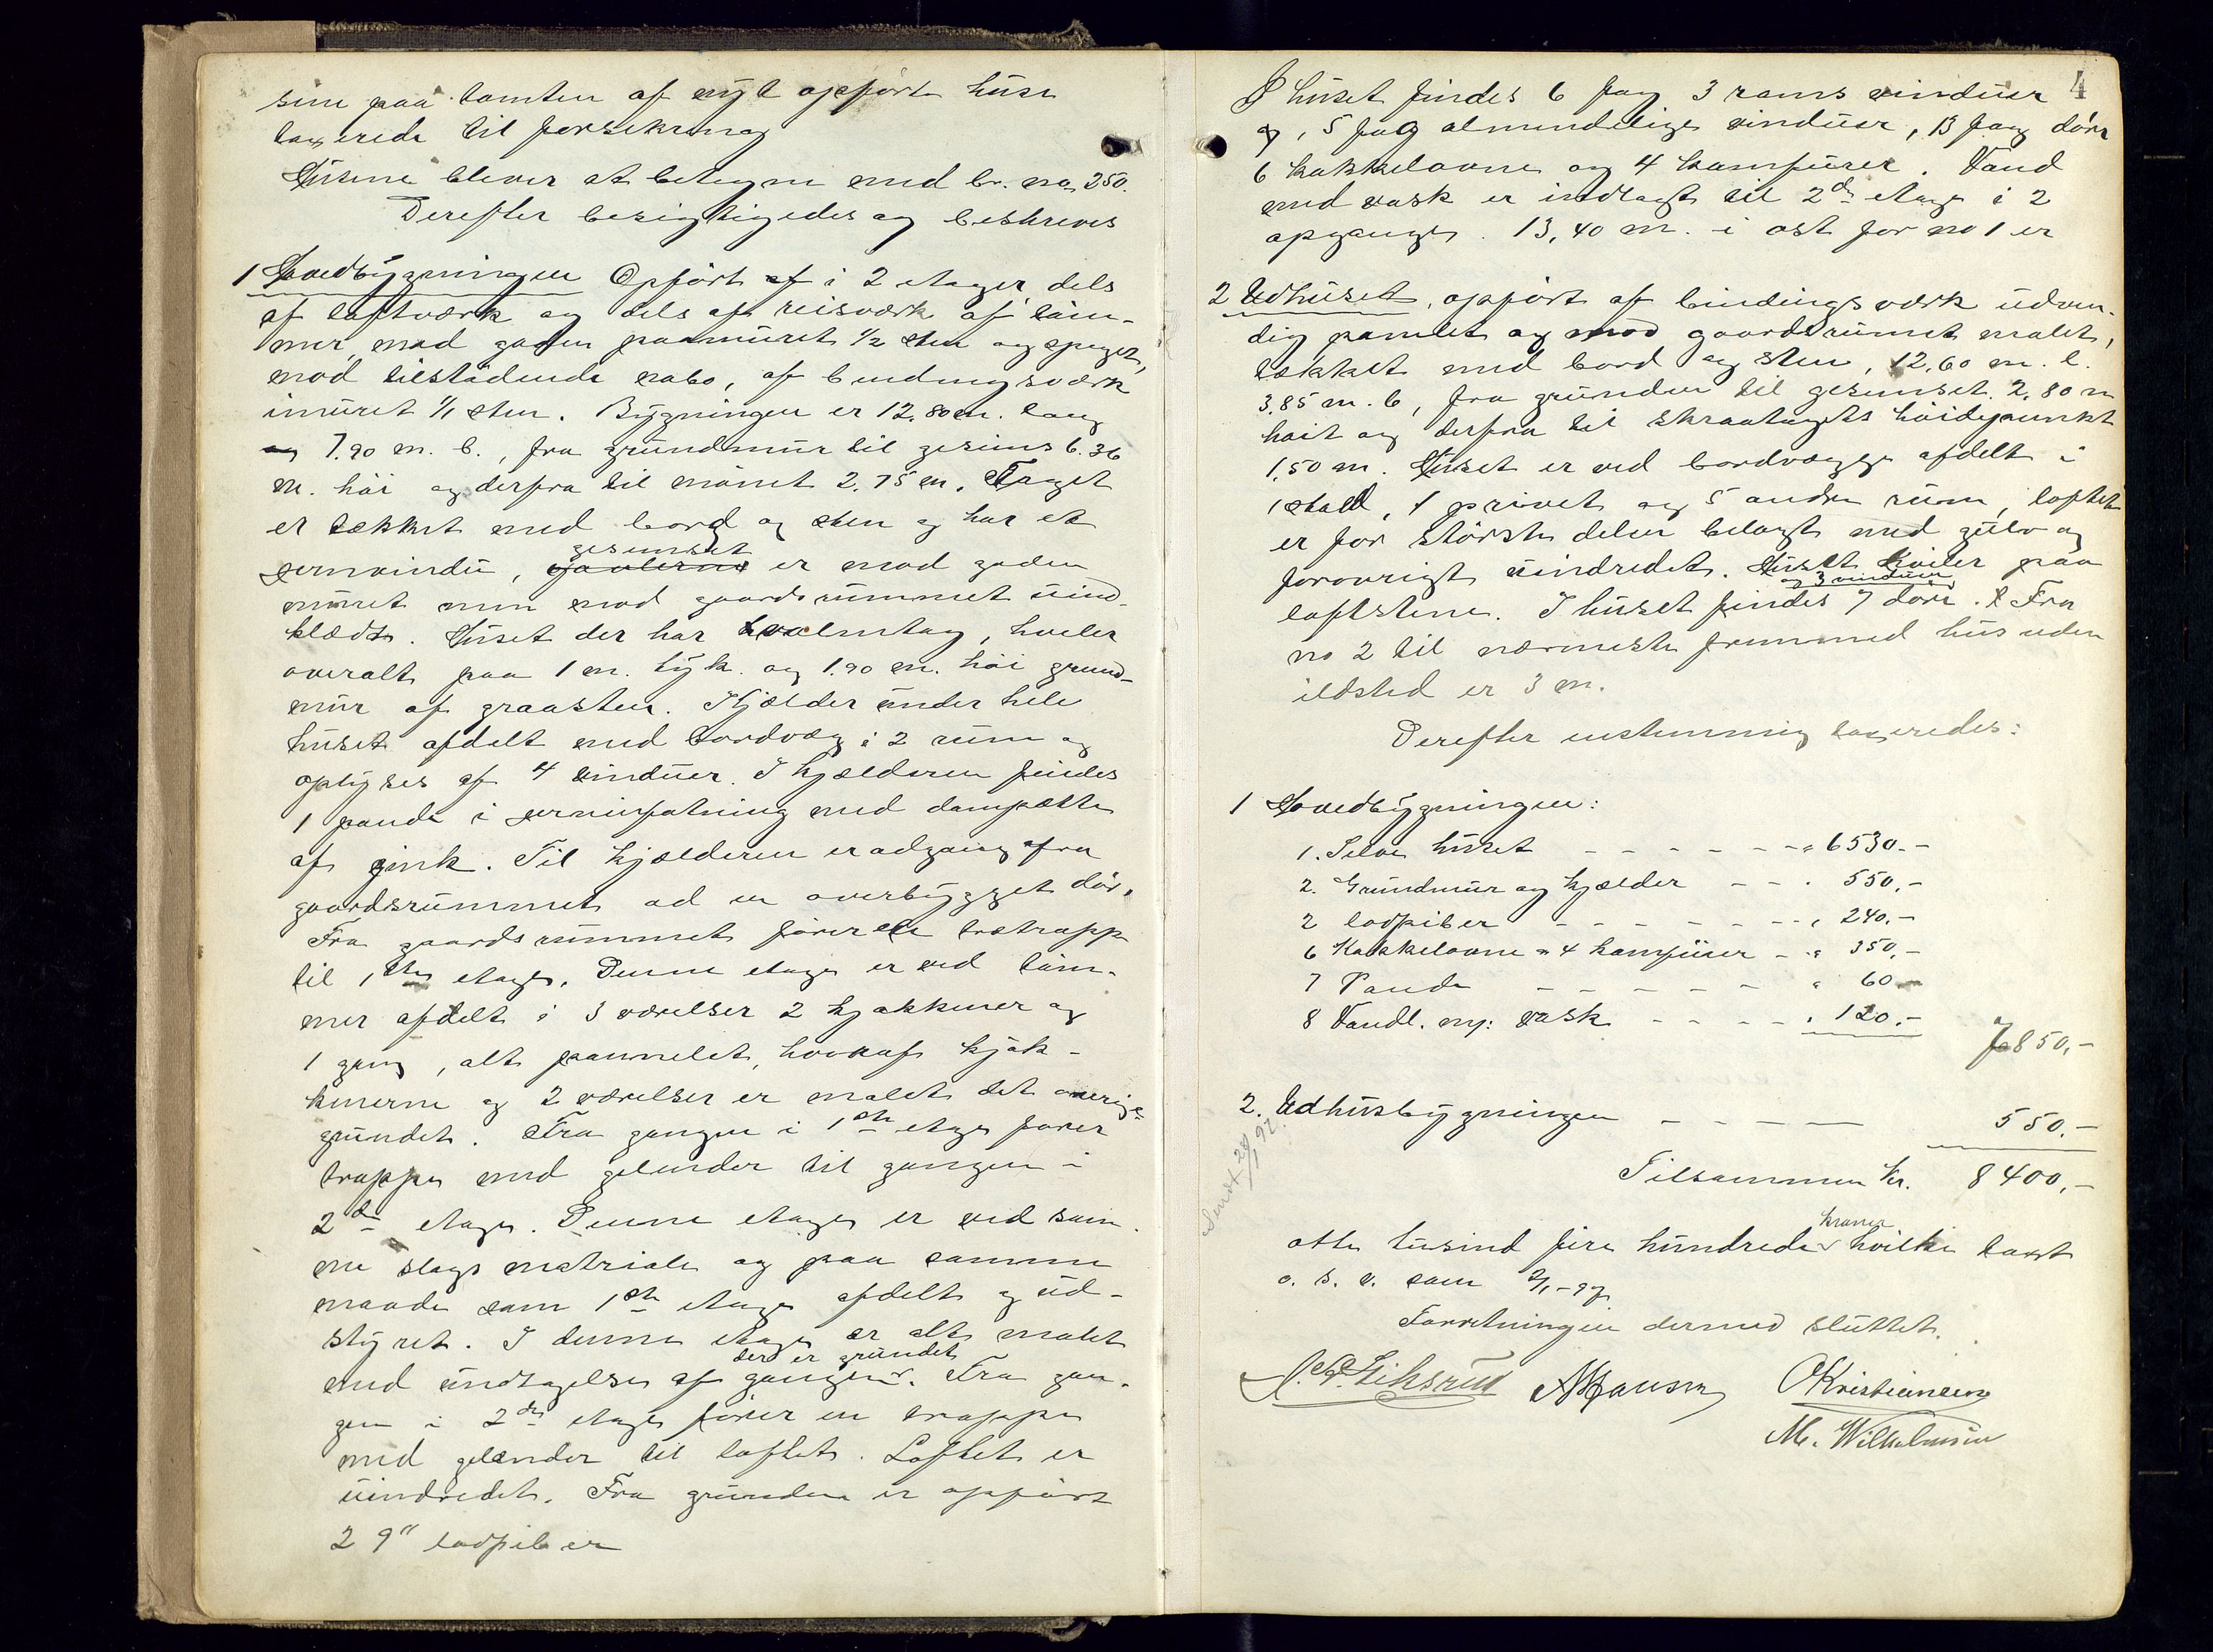 sine paa tomten af nyt opførte huse
taxerede til forsikring
Husene bliver at betegne med br. no 250.
Derefter besigtigedes og beskreves
1 Hovedbygningen Opført af i 2 etager dels
af laftværk og dels af reisværk af tøm-
mer, mod gaden paamuret 1/2 sten og speget,
mod tilstødende nabo, af bindingsværk
imuret 1/1 sten. Bygningen er 12,80 m. lang
og 7.90 m. b., fra grundmur til gesims 6.36
m. høi og derfra til mønet 2.75 m. Taget
er tækket med bord og sten og har et
gesimset
jernvindu, gavlerne er mod gaden
muret men mod gaardsrummet uind-
klædt. Huset der har valmtag, hviler
overalt paa 1 m. tyk og 1.90 m. høi grund-
mur af graasten. Kjælder under hele
huset afdelt med bordvæg i 2 rum og
oplyses af 4 vinduer. I kjælderen findes
1 pande i jerninfatning med damphætte
af zink. Til kjælderen er adgang fra
gaardsrummet ad en overbygget dør.
Fra gaardsrummet fører en trætrapp
til 1ste etage. Denne etage er ved tøm-
mer afdelt i 3 værelser 2 kjøkkener og
1 gang, alt pannelet, hvoraf kjøk-
kenerne og 2 værelser er malet det øvrige
grundet. Fra gangen i 1ste etage fører
trappe med gelender til gangen i
2den etage. Denne etage er ved sam-
me slags matriale og paa samme
maade som 1ste etage afdelt og ud-
styret. I denne etage er alt malet
der er grundet
med undtagelse af gangen. Fra gan-
gen i 2den etage fører en trappe
med gelænder til loftet. Loftet er
uindredet. Fra grunden er opført
2 9" lodpiber
4
I huset findes 6 fag 3 rams vinduer
og, 5 fag almindelige vinduer, 13 fag døre
6 kakkelovne og 4 komfurer. Vand
med vask er indlagt til 2den etage i 2
opgange. 13,40 m. i øst for no 1 er
2 Udhuset, opført af bindingsværk udven-
dig pamlet og mod gaardsrumet malet,
tækket med bord og sten, 12,60 m. l.
3,85 m. b, fra grunden til gesimset 2,80 m
høit og derfra til skraatagets høidepunkt
1,50 m. Huset er ved bordvægge afdelt i
1 stald, 1 privet og 5 andre rum, loftet
er for største delen belagt med gulv og
forøvrigt uindredet. Huset hviler paa
og 3 vinduer
løftstene. I huset findes 7 døre. Fra
no 2 til nærmeste fremmed hus uden
ildsted er 3 m.
Derefter enstemmig taxeredes:
1 Hovedbygningen:
1. Selve huset - - - - - - " 6530.-
2. Grundmur og kjælder - - - 550,-
2 lodpiber - - - - - - " 240.-
6 Kakkelovne " 4 komfurer - " 350,-
7 Pande - - - - - " 60.-
8 Vandl. m: vask - - - - " 120.-
7850,-
2. Udhusbygningen - - - - 550.-
Tilsammen kr. 8400,-
kroner
otte tusind fire hundrede hvilke taxt
o. s. v. som 2/1-97
Forretningen dermed sluttet.
Sendt 29/1 97.
AHansen OKristiansen
M. Wilhelmsen